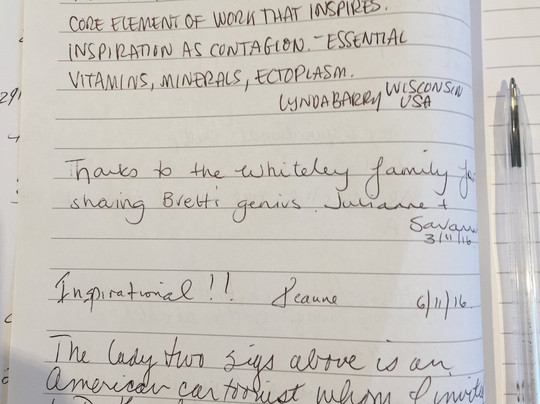 CORE ELEMENT OF WORK THAT INSPIRES.
INSPIRATION AS CONTAGION. - ESSENTIAL
VITAMINS, MINERALS, ECTOPLASM.
LYNDA BARRY WISCONSIN
USA
Thanks to the Whiteley family for
sharing Brett's genius. Julianne +
3/11/16
Inspirational!! Jeanne 6/11/16
The lady two sigs above is an
American cartoonist whom I